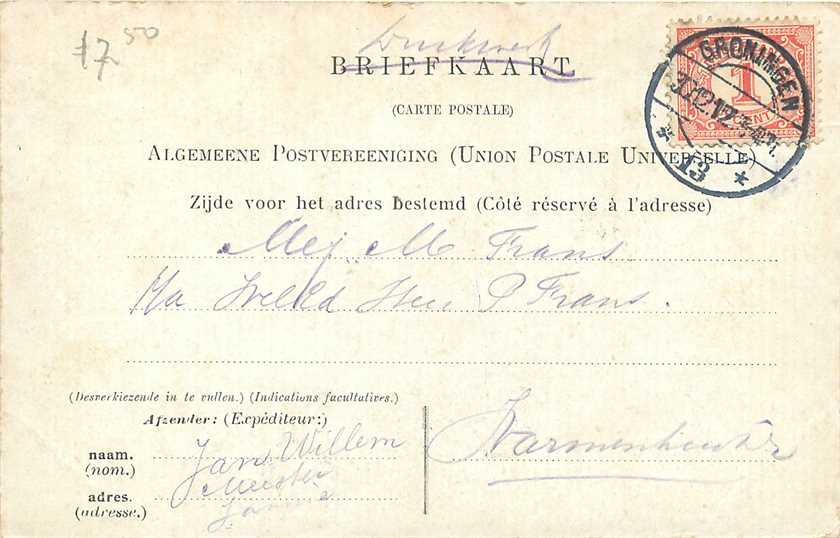 f 7.50
Drukwerk
BRIEFKAART
(CARTE POSTALE)
ALGEMEENE POSTVEREENIGING (UNION POSTALE UNIVERSELLE)
Zijde voor het adres bestemd (Côté réservé à l'adresse)
GRONINGEN
13
1
CENT
Mej M Frans
P Frans.
(Desverkiezende in te vullen.) (Indications facultatives.)
Afzender: (Expéditeur:)
naam.
(nom.)
Jan Willem
adres.
(adresse.)
Meester
Warmenhuizen